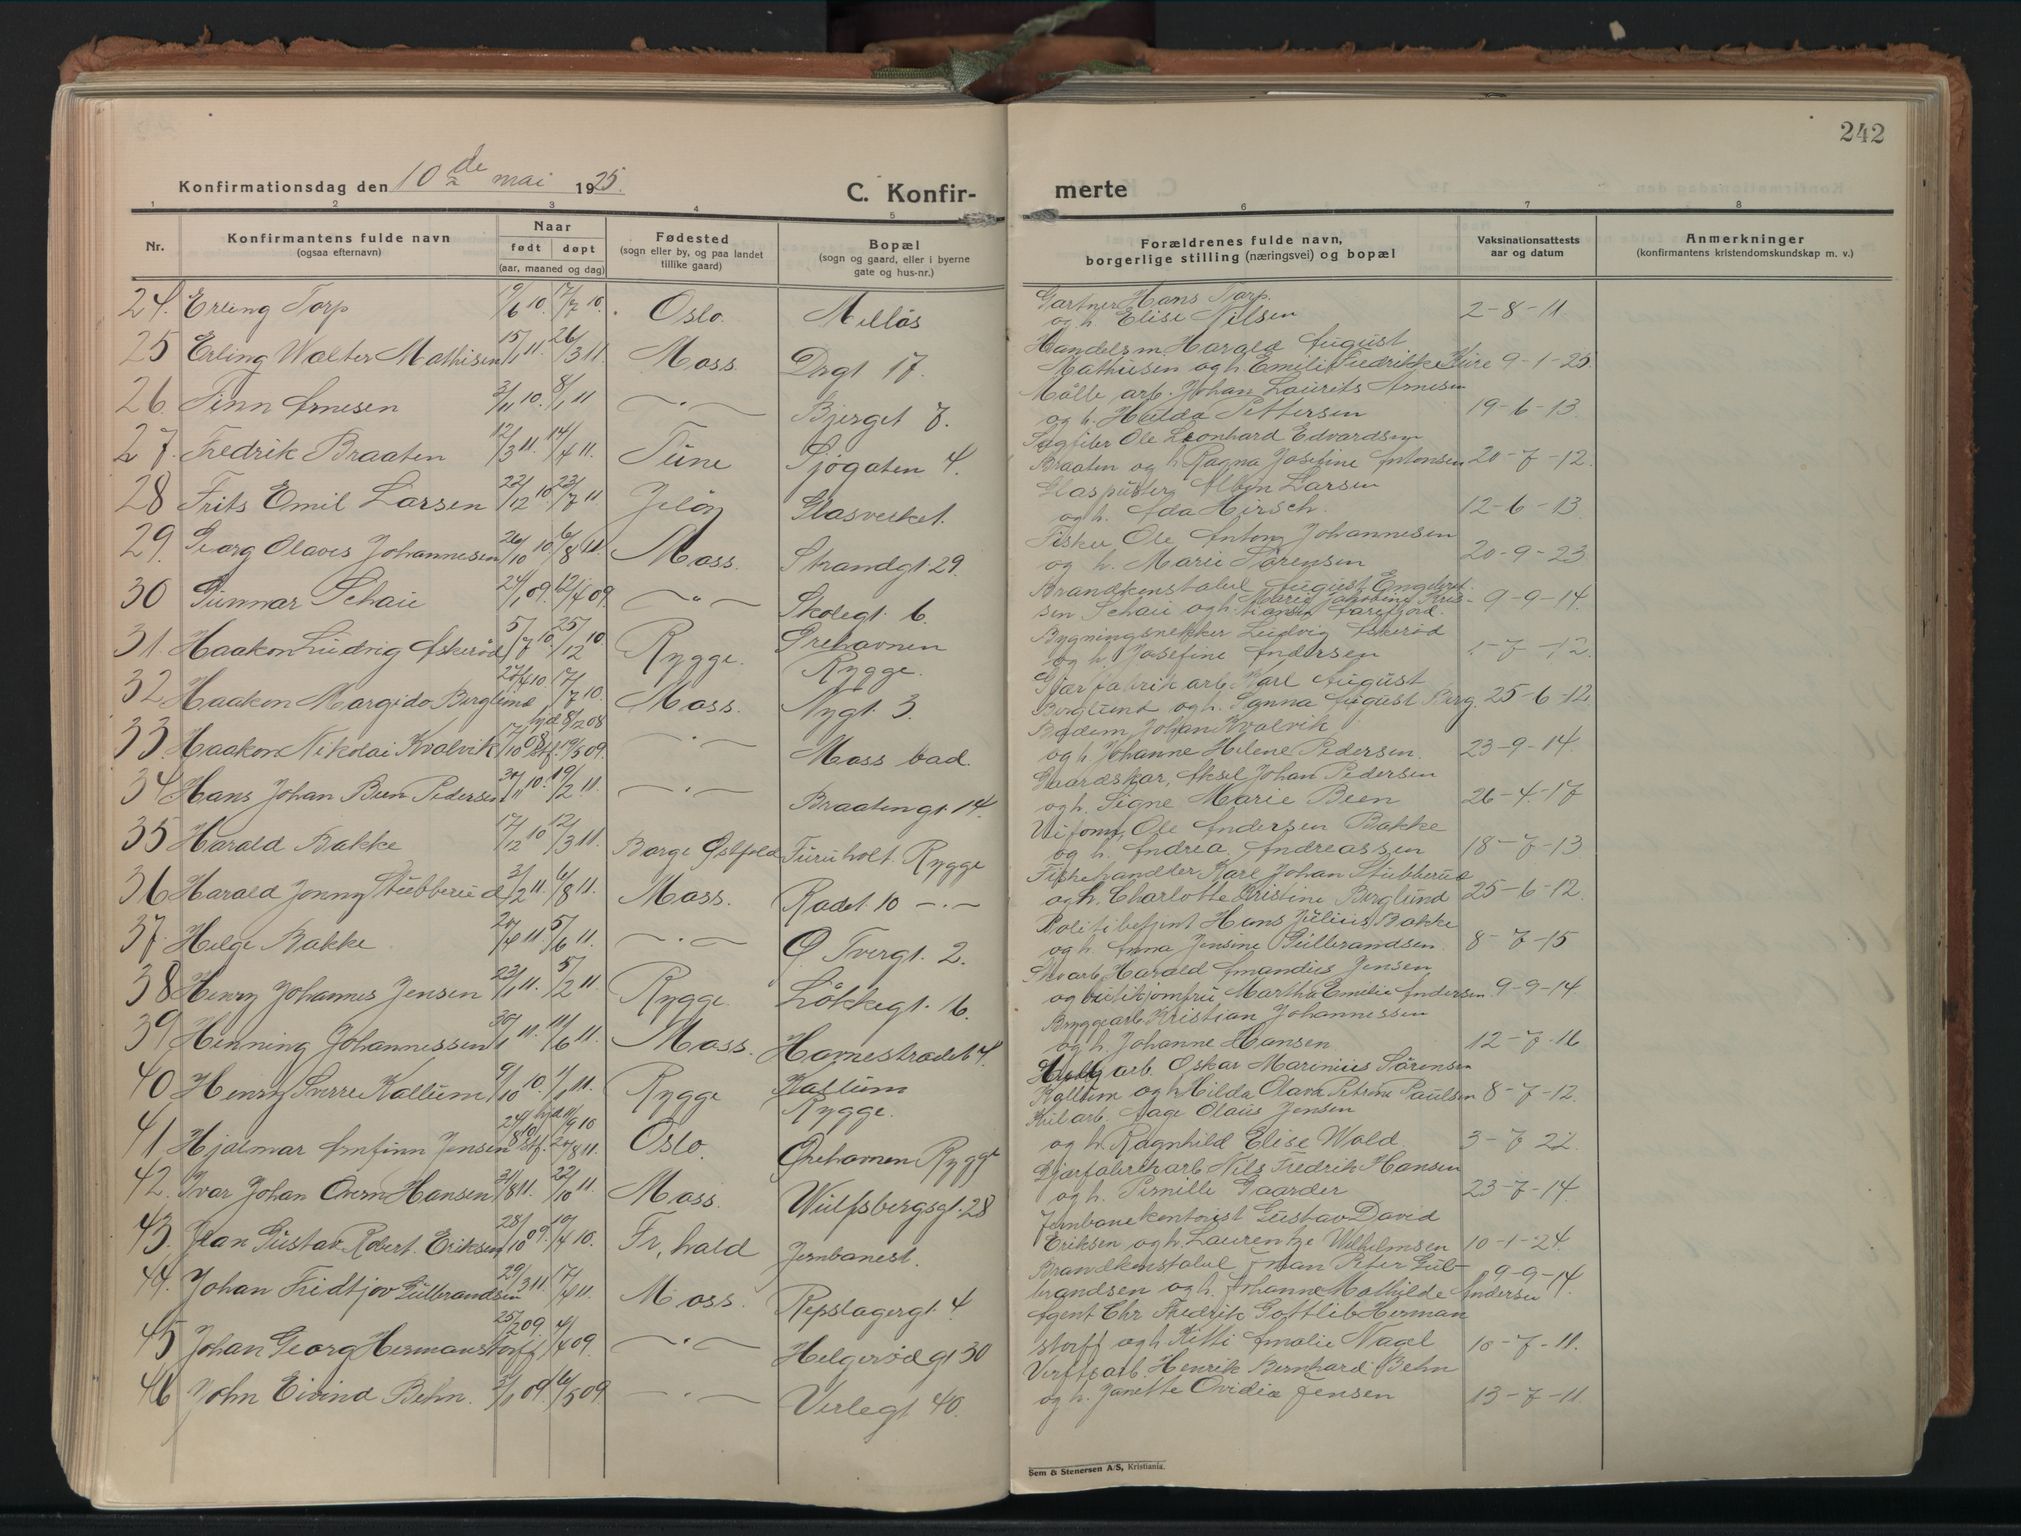 242
Konfirmationsdag den 10de mai 1925.
C. Konfir-
merte
1 2 3 4 5 6 7 8
Nr.
Konfirmantens fulde navn
(ogsaa efternavn)
Naar
født døpt
(aar, maaned og dag)
Fødested
(sogn eller by, og paa landet
tillike gaard)
Bopæl
(sogn og gaard, eller i byerne
gate og hus-nr.)
Forældrenes fulde navn,
borgerlige stilling (næringsvei) og bopæl
Vaksinationsattests
aar og datum
Anmerkninger
(konfirmantens kristendomskundskap m. v.)
24. Erling Torp 19/6 10. 17/7 10. Oslo. Melløs
Gartner Hans Torp
og h. Elise Nilsen 2-8-11
25 Erling Walter Mathisen 15/1 11. 26/3 11. Moss. Drgt 17.
Handelsm. Harald August
Mathisen og h. Emilie Fredrikke Kure 9-1-25
26. Finn Arnesen 3/11 10. 8/1 11 —"— Bjerget 7.
Mølle arb. Johan Laurits Arnesen
og h. Hulda Pettersen 19-6-13.
27. Fredrik Braaten 12/3 11. 14/4 11. Tune Sjøgaten 4.
Sagfiler Ole Leonhard Edvardsen
Braaten og h. Ragna Josefine Antonsen 20-7-12.
28 Frits Emil Larsen 22/12 10. 23/7 11. Jeløy Glasverket.
Glaspuster Albin Larsen
og h. Ada Hirsch. 12-6-13.
29. Georg Olaves Johannesen 26/10 10. 6/8 11. Moss. Strandgt 29.
Fisker Ole Antony Johannesen
og h. Marie Sørensen 20-9-23
30 Gunnar Schau 24/1 09. 12/4 09. —"— Skolegt. 6.
Brandkonstabel August Engebret-
sen Schau og h. Marie Jakobine Kris-
9-9-14.
31. Haakon Ludvig Askerød 5/7 10. 25/12 10 Rygge. Orehavnen
Rygge.
Bygningsnekker Ludvig Askerød
og h. Josefine Andersen 1-7-12.
32 Haakon Margido Berglund 27/4 10 17/7 10. Moss. Nygt. 3.
Gjærfabrik arb. Karl August
Berglund og h. Sanna August Berg. 25-6-12.
33. Haakon Nikolai Kvalvik 17/10 08 hjd 8/2 08 stf. 19/5 09. —"— Moss bad.
Badem Johan Kvalvik
og h. Johanne Helene Pedersen. 23-9-14.
34 Hans Johan Been Pedersen 30/11 10. 19/2 11. —"— Braatengt 14.
Gaardskar, Aksel Johan Pedersen
og h. Signe Marie Been 26-4-17
35 Harald Bakke 17/12 10 12/3 11. Borge Østfold Furuholt. Rygge
Vifom. Ole Andersen Bakke
og h. Andrea Andreassen 18-7-13
36 Harald Jonny Stubberud 3/2 11. 6/8 11. Moss. Rødet 10 —"—
Fiskehandler Karl Johan Stubberud
og h. Charlotte Kristine Berglund 25-6-12.
37. Helge Bakke. 20/4 11. 5/6 11. —"— Ø Tvergt. 2.
Politibetjent Hans Julius Bakke
og h. Anna Jensine Gulbrandsen. 8-7-15
38 Henry Johannes Jensen 23/1 11. 5/2 11. Rygge Løkkegt. 16.
Skoarb. Harald Amandus Jensen
og butikjomfru Martha Emilie Andersen 9-9-14
39 Henning Johannessen 30/1 11. 11/6 11. Moss. Havnestrædet 4.
Bryggearb. Kristian Johannessen
og h. Johanne Hansen. 12-7-16
40 Henry Sverre Kallum 9/10 10. 1/1 11. Rygge Kallum
Rygge.
arb. Oskar Marinius Sørensen
Kallum og h. Hilda Olava Petrine Paulsen 8-7-12.
41 Hjalmar Arnfinn Jensen 24/8 10 hjd 11/9 10 stf. 20/8 11. Oslo. Orehavnen Rygge
arb. Aage Olaus Jensen
og h. Ragnhild Elise Wold. 3-7 22
42. Ivar Johan Overn Hansen 31/8 11. 22/10 11. Moss. Wulfsbergsgt. 28
Gjærfabrik arb Nils Fredrik Hansen
og h. Pernille Gaarder 23-7-14.
43. Jean Gustav Robert Eriksen 28/10 09. 10/4 10. Fr. hald Jernbanest.
Jernbanekontorist Gustav David
Eriksen og h. Laurentze Wilhelmsen 10-1-24.
44. Johan Fridtjov Gulbrandsen 29/3 11. 17/4 11. Moss. Repslagergt 4
Brandkonstabel Johan Peter Gul-
brandsen og h. Johanne Mathilde Andersen 9-9-14.
45 Johan Georg Hermanstorff 25/2 09. 4/4 09. —"— Helgerødgt 30
Agent Chr Fredrik Gottlib Herman
storff og h. Kitti Amalie Nagel 10-7-11.
46 John Eivind Behn. 3/1 09. 16/5 09. —"— Verlegt 40.
Verftsarb. Henrik Bernhard Behn
og h. Janette Ovidia Jensen 13-7-11.
Sem & Stenersen A/S, Kristiania.